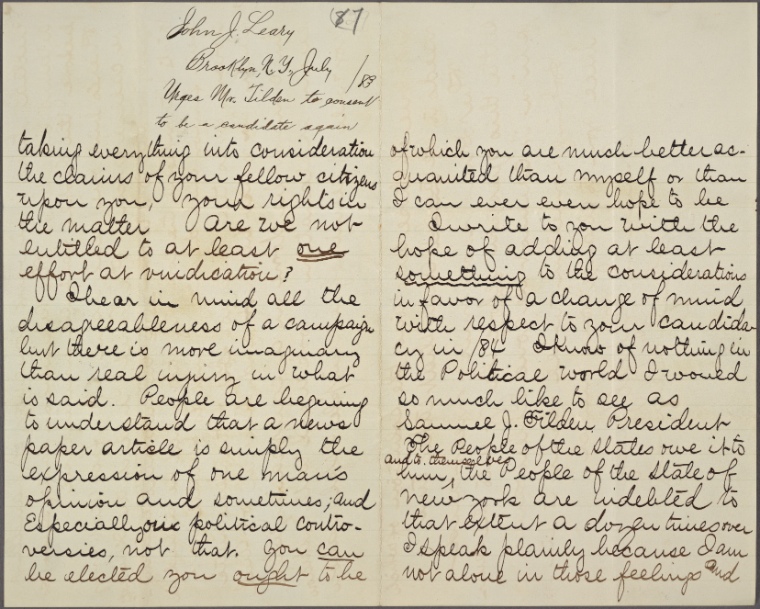 John J. Leary
87
Brooklyn, N.Y., July /83
Urges Mr. Tilden to consent
to be a candidate again
taking everything into consideration
the claims of your fellow citizens
upon you, your rights in
the matter are we not
entitled to at least one
effort at vindication?
I bear in mind all the
disagreeableness of a campaign
but there is more imaginary
than real injury in what
is said. People are beginning
to understand that a news
paper article is simply the
expression of one man's
opinion and sometimes, and
Especially in political contro-
versies, not that. You can
be elected you ought to be
of which you are much better ac-
quainted than myself or than
I can ever even hope to be
I write to you with the
hope of adding at least
something to the considerations
in favor of a change of mind
with respect to your candida-
cy in /84 I know of nothing in
the Political world I would
so much like to see as
Samuel J. Tilden, President
The People of the States owe it to
and to themselves
him, the People of the State of
New York are indebted to
that extent a dozen times over
I speak plainly because I am
not alone in those feelings and